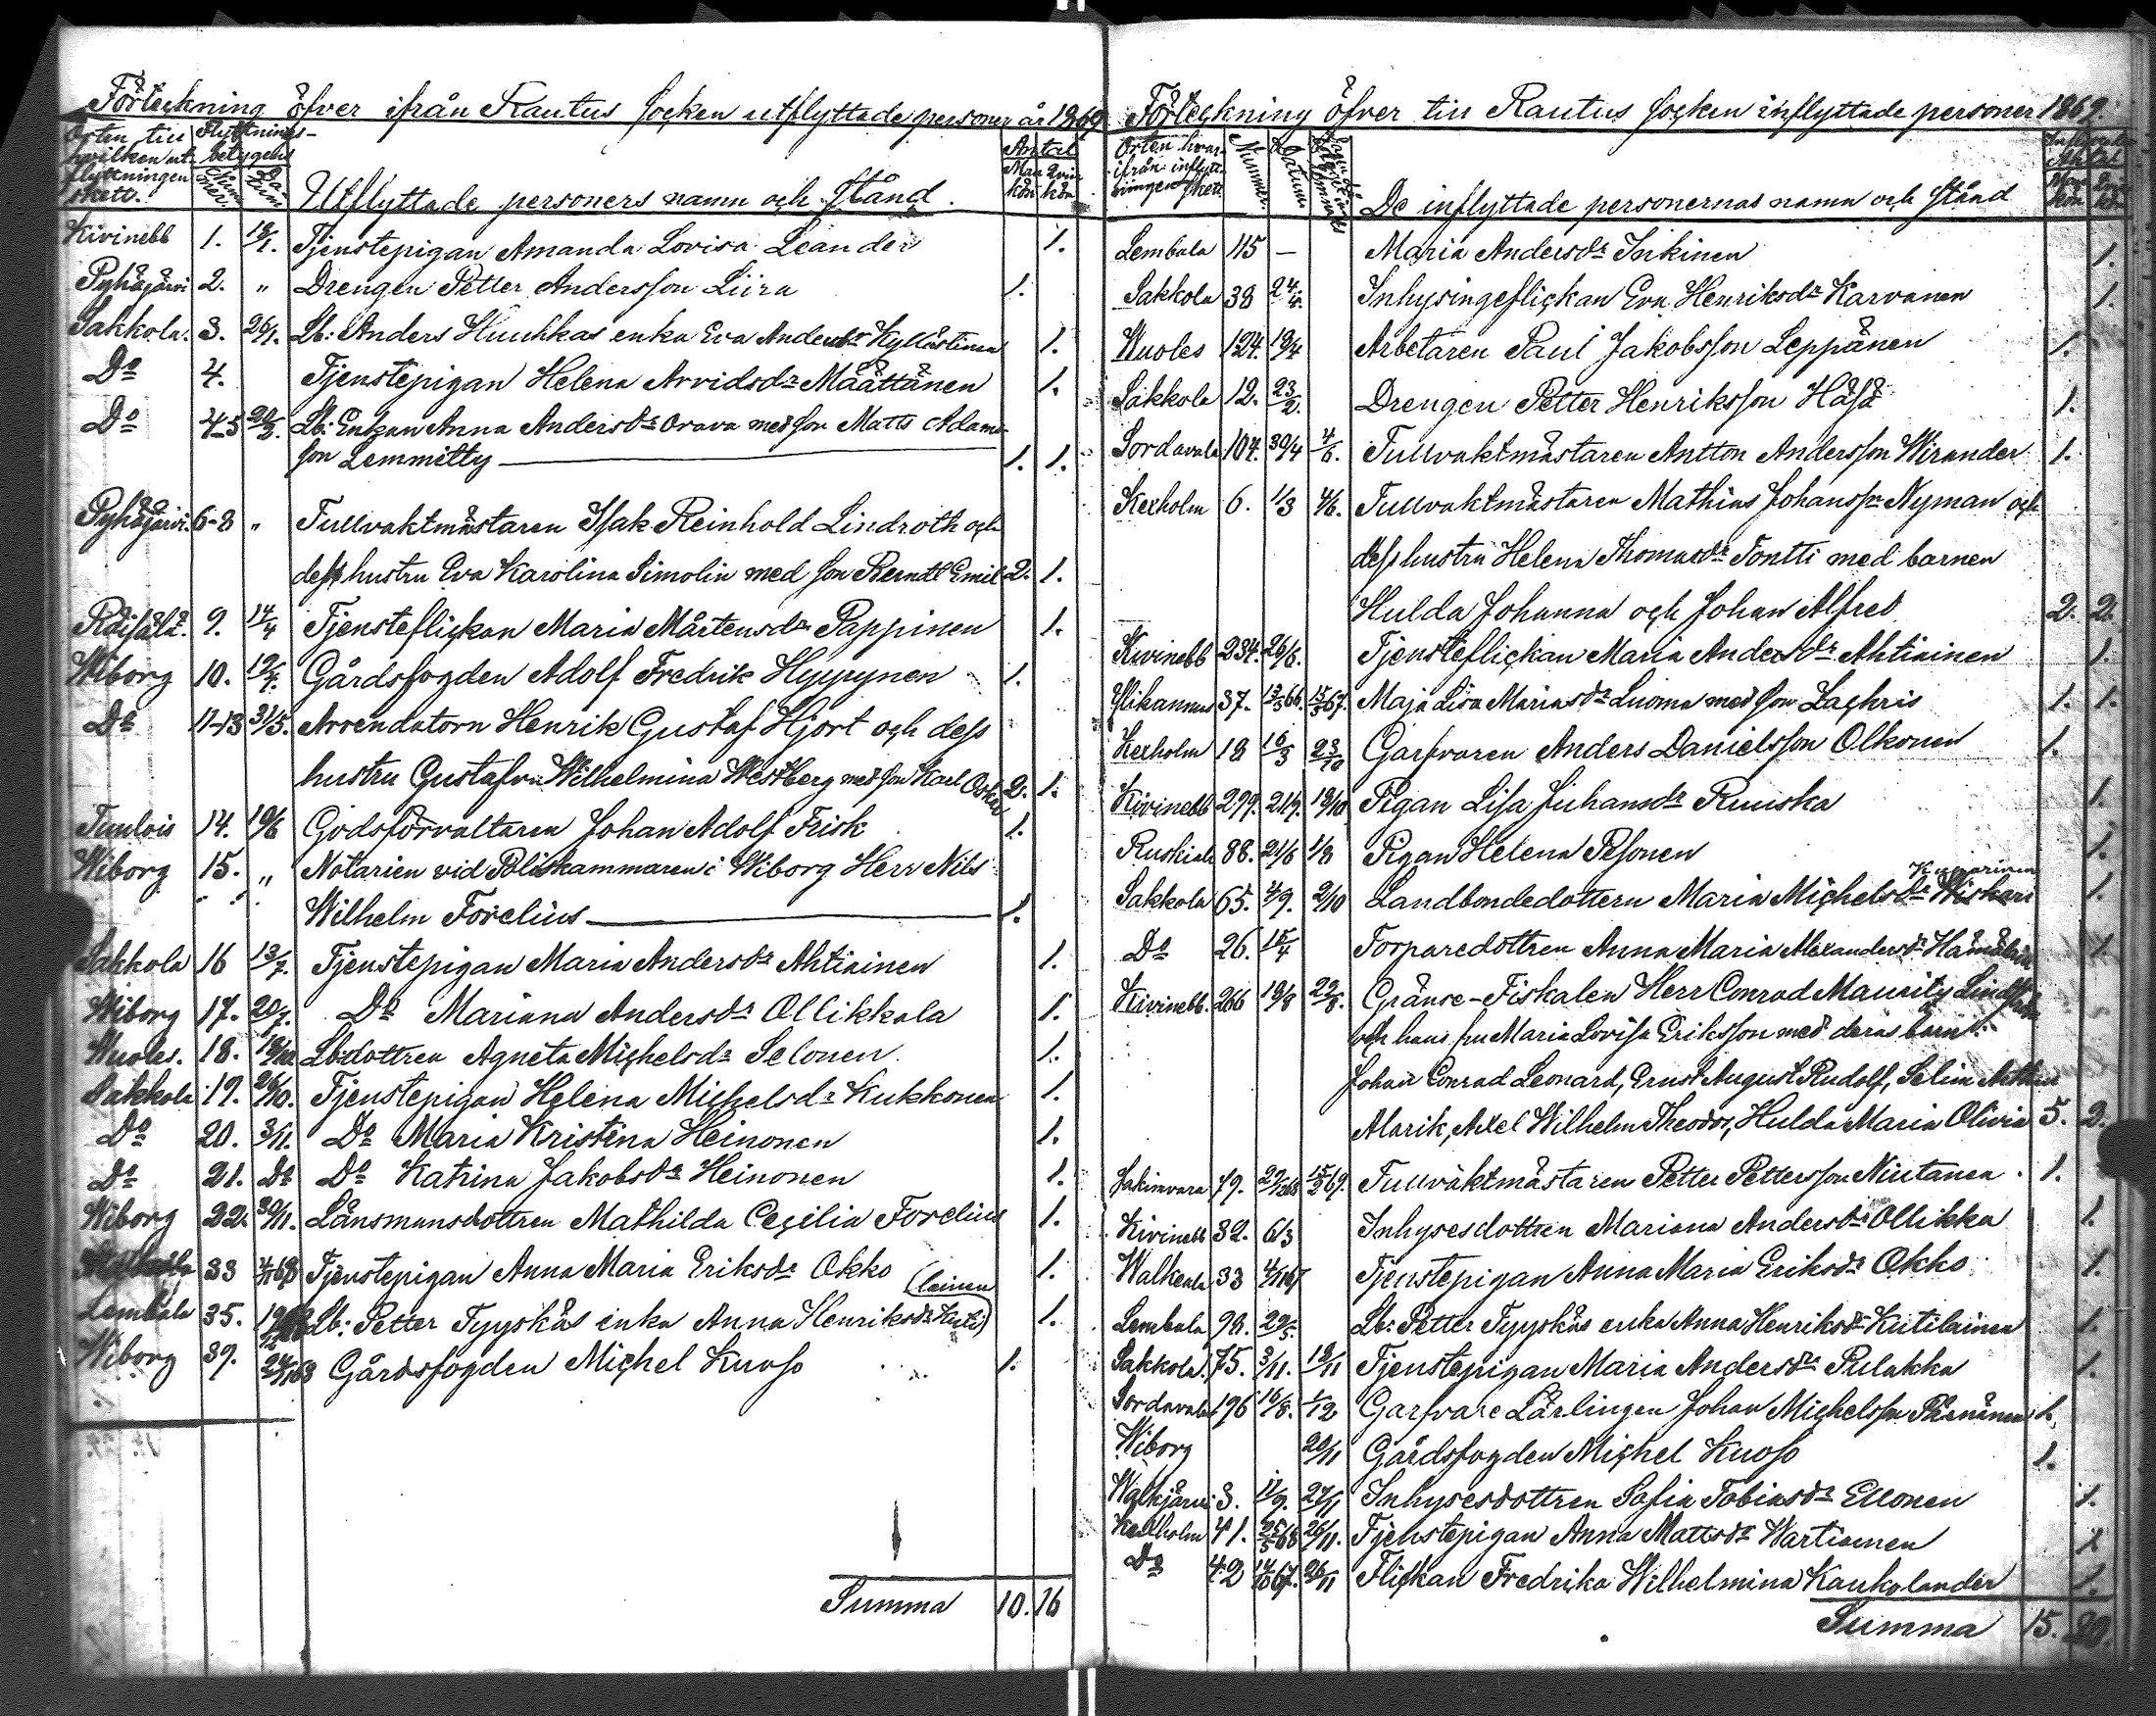 Förteckning öfver ifrån Rautus socken utflyttade personer år 1869
Orten till hvilken utflyttningen skett. Flyttningsbetygens Nummer Datum Utflyttade personers namn och stånd. Antal Mankön Qvinkön
Kivinebb 1. Tjenstepigan Amanda Lovisa Leander 1.
Pyhäjärvi 2. " Drengen Petter Andersson Liira 1.
Sakkola. 3. 26/1. Lb: Anders Huuhkas enka Eva Andersdr 1.
Do 4. Tjenstepigan Helena Arvidsdr Määttänen 1.
Do 4-5 Lb: Enkan Anna Andersdr Orava med son Matts Adams-
son Lemmitty 1. 1.
Pyhäjärvi. 6-8 " Tullvaktmästaren Isak Reinhold Lindroth och
dess hustru Eva Karolina Simolin med son Berndt Emil 2. 1.
Räisälä. 9. 14/4 Tjensteflickan Maria Mårtensdr Pappinen 1.
Wiborg 10. Gårdsfogden Adolf Fredrik Hyypynen 1.
Do 11-13 31/5. Arrendatorn Henrik Gustaf Hjort och dess
hustru Gustafva Wilhelmina Westberg med son Karl Oskar 2. 1.
Tuulois 14. Godsförvaltaren Johan Adolf Frisk 1.
Wiborg 15. " Notarien vid Poliskammaren i Wiborg Herr Nils
Wilhelm Forelius 1.
Sakkola 16 13/7. Tjenstepigan Maria Andersdr Ahtiainen 1.
Wiborg 17. 20/7. Do Mariana Andersdr Ollikkala 1.
Wuoles. 18. Lbdottren Agneta Michelsdr Selonen. 1.
Sakkola 19. 26/10. Tjenstepigan Helena Michelsdr Kukkonen 1.
Do 20. 3/11. Do Maria Kristina Heinonen 1.
Do 21. Do Do Katrina Jakobsdr Heinonen 1.
Wiborg 22. 30/11. Länsmansdottren Mathilda Cecilia Forelius 1.
33 Tjenstepigan Anna Maria Eriksdr Okko 1.
Lembala 35. Lb: Petter Tyyskäs enka Anna Henriksdr Kuti(lainen) 1.
Wiborg 39. Gårdsfogden Michel Kuoso 1.
Summa 10. 16
Förteckning öfver till Rautus socken inflyttade personer 1869.
Orten hvarifrån inflyttningen skett. Nummer Datum De inflyttade personernas namn och stånd Mankön Qvinkön
Lembala 115 — Maria Andersdr Inkinen 1.
Sakkola 38 24/4. Inhysingeflickan Eva Henriksdr Karvanen 1.
Wuoles 124. 19/4 Arbetaren Paul Jakobsson Leppänen 1.
Sakkola 12. 23/2. Drengen Petter Henriksson Häsä 1.
Sordavala 104. 30/4 4/6. Tullvaktmästaren Antton Andersson Wirander 1.
Kexholm 6. 1/3 4/6. Tullvaktmästaren Mathias Johansson Nyman och
dess hustru Helena Thomasdr Tontti med barnen
Hulda Johanna och Johan Alfred 2. 2.
Kivinebb 234. 26/6. Tjensteflickan Maria Andersdr Ahtiainen 1.
37. 13/3 66 15/5 67. Maja Lisa Mariasdr Luoma med son Zachris 1. 1.
Kexholm 18 16/3 23/10 Garfvaren Anders Danielsson Olkonen 1.
Kivinebb 299. 21/9. 18/10 Pigan Lisa Juhansdr Ruuska 1.
Ruskiala 88. 21/6 1/8 Pigan Helena Pesonen 1.
Sakkola 65. 4/9. 2/10 Landbondedottern Maria Michelsdr Wiskari Kupparinen 1.
Do 26. 15/4 Torparedottren Anna Maria Alexandersdr Hämäläin 1.
Kivinebb. 266 19/8 22/8. Gränse-Fiskalen Herr Conrad Mauritz
och hans fru Maria Lovisa Eriksson med deras barn:
Johan Conrad Leonard, Ernst August Rudolf, Selim Arthur
Alarik, Axel Wilhelm Theodor, Hulda Maria Olivia 5. 2.
Jakimvara 79. 15/2 69. Tullvaktmästaren Petter Pettersson Niutanen 1.
Kivinebb 32. 6/3 Inhysesdottren Mariana Andersdr Ollikka 1.
Walkeala 33 Tjenstepigan Anna Maria Eriksdr Okko 1.
Lembala 98. 29/5. Lb: Petter Tyyskäs enka Anna Henriksdr Kutilainen 1.
Sakkola. 75. 3/11. 18/11 Tjenstepigan Maria Andersdr Pulakka 1.
Sordavala 196 16/8. 1/12 Garfvare Lärlingen Johan Michelsson Pärnänen 1.
Wiborg 20/11 Gårdsfogden Michel Kuoso 1.
Walkjärvi 3. 17/9. 27/11 Inhysesdottren Sofia Tobiasdr Ellonen 1.
Kexholm 41. 25/5 68 26/11. Tjenstepigan Anna Mattsdr Wartiainen 1
Do 42 14/10 67. 26/11 Flickan Fredrika Wilhelmina Kaukolander 1.
Summa 15. 20.